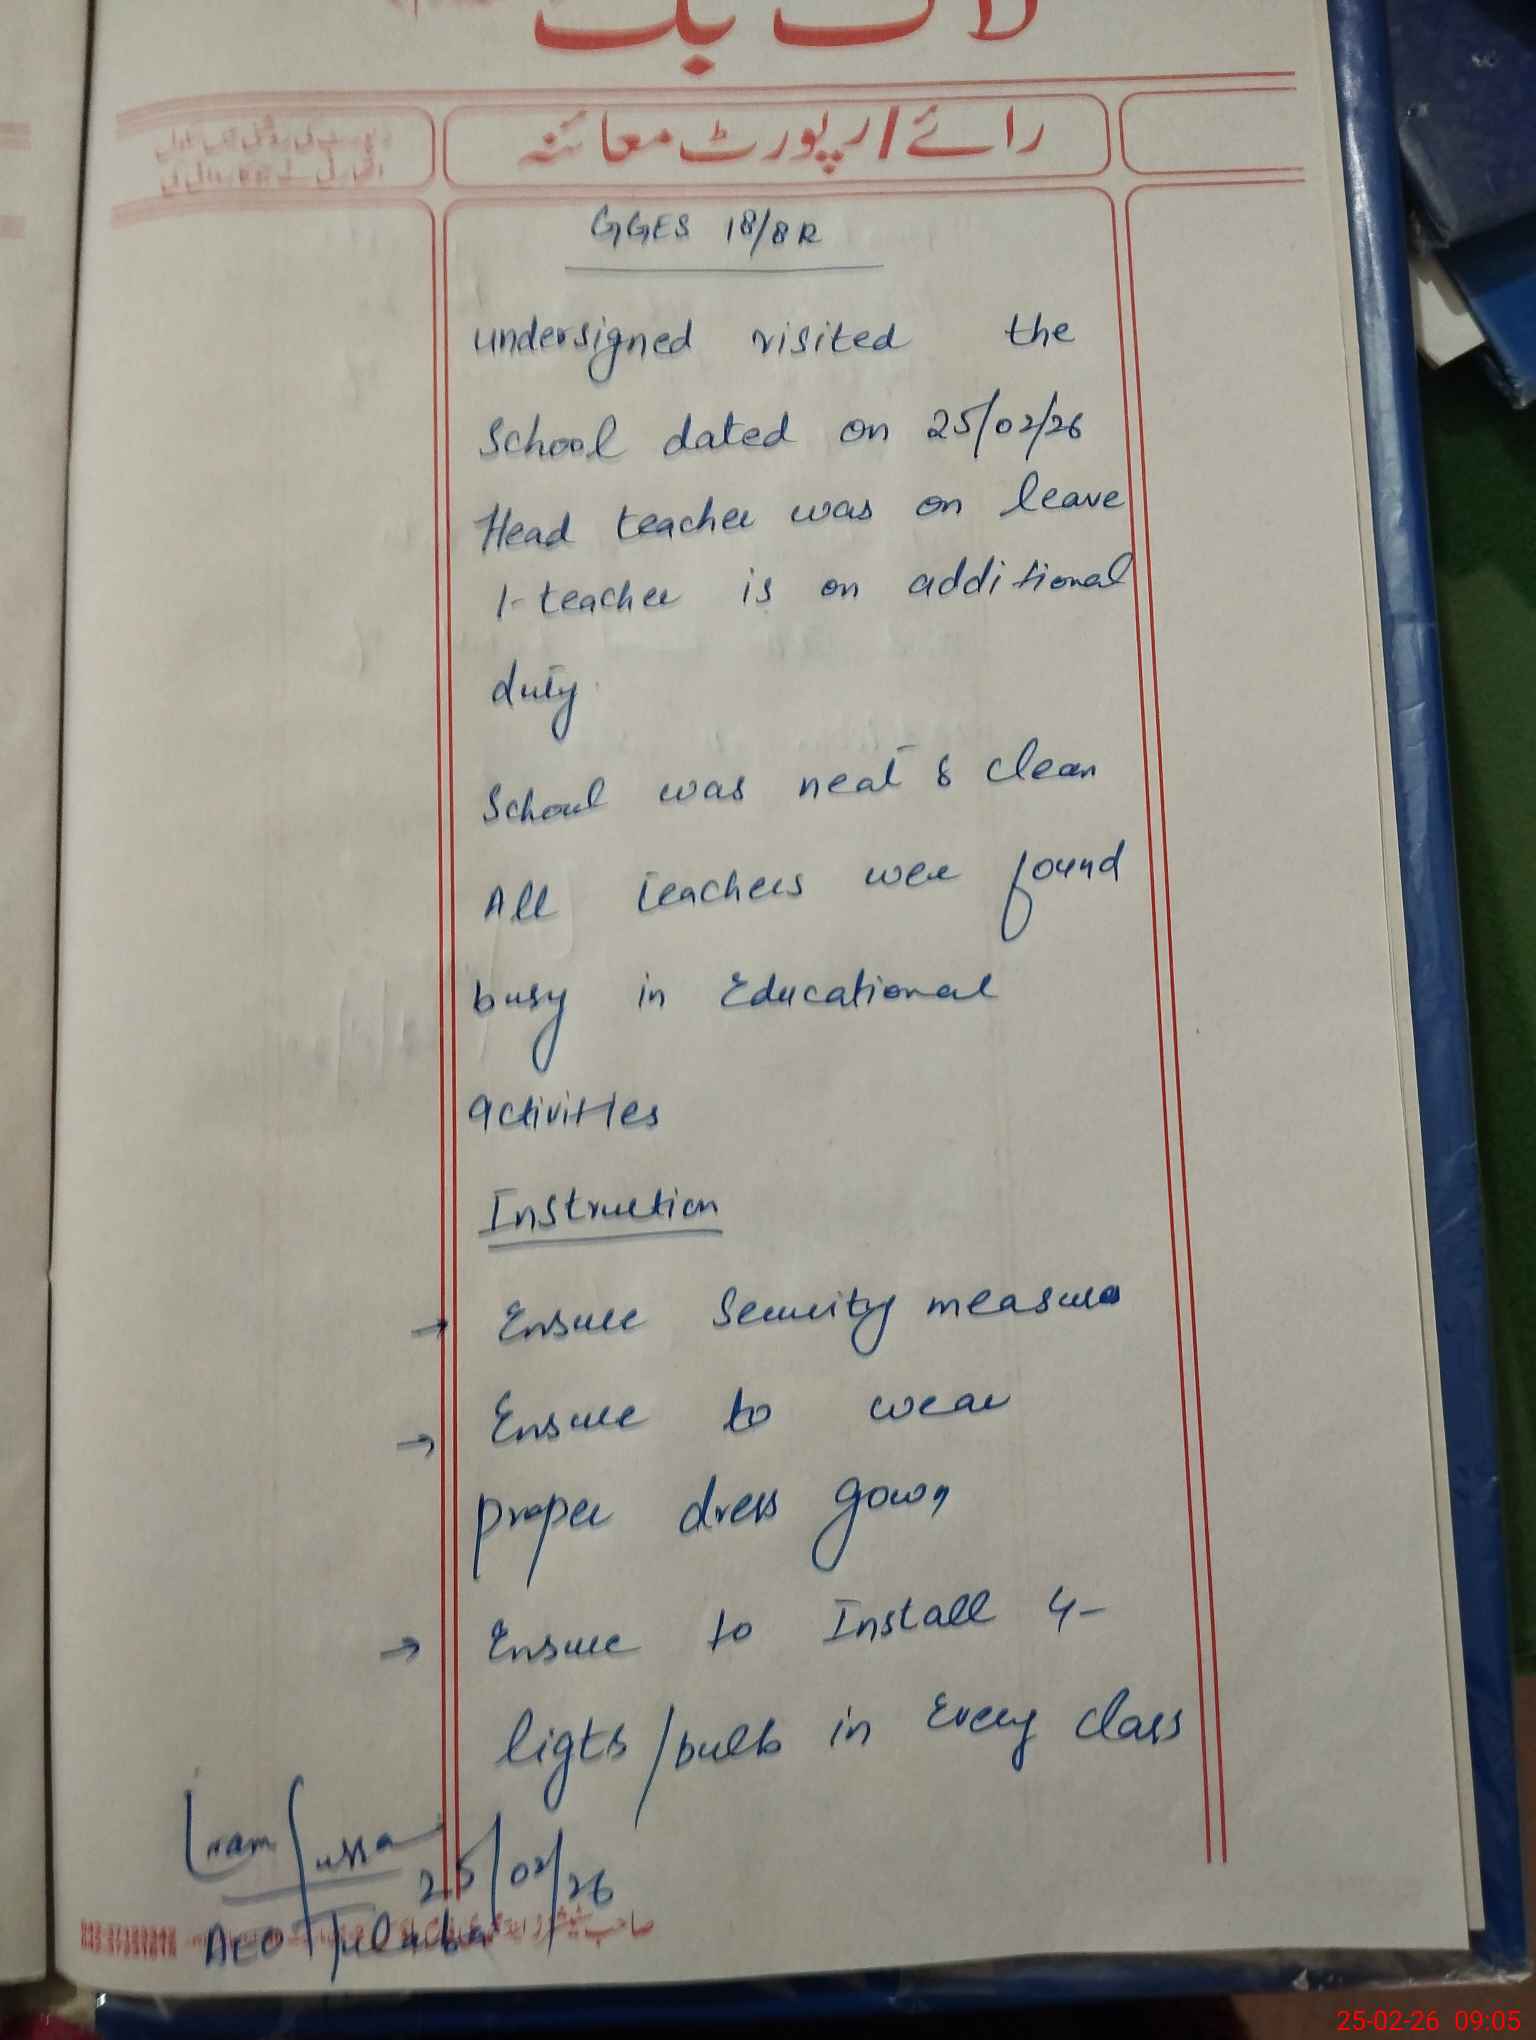 لاگ بک
رائے/رپورٹ معائنہ
GGES 18/8R
undersigned visited the
School dated on 25/02/26
Head teacher was on leave
1-teacher is on additional
duty.
School was neat & clean
All teachers were found
busy in Educational
activities
Instruction
→ Ensure Security measures
→ Ensure to wear
proper dress gown
→ Ensure to Install 4-
ligts/bulb in Every class
25/02/26
AEO Tulamba
25-02-26 09:05